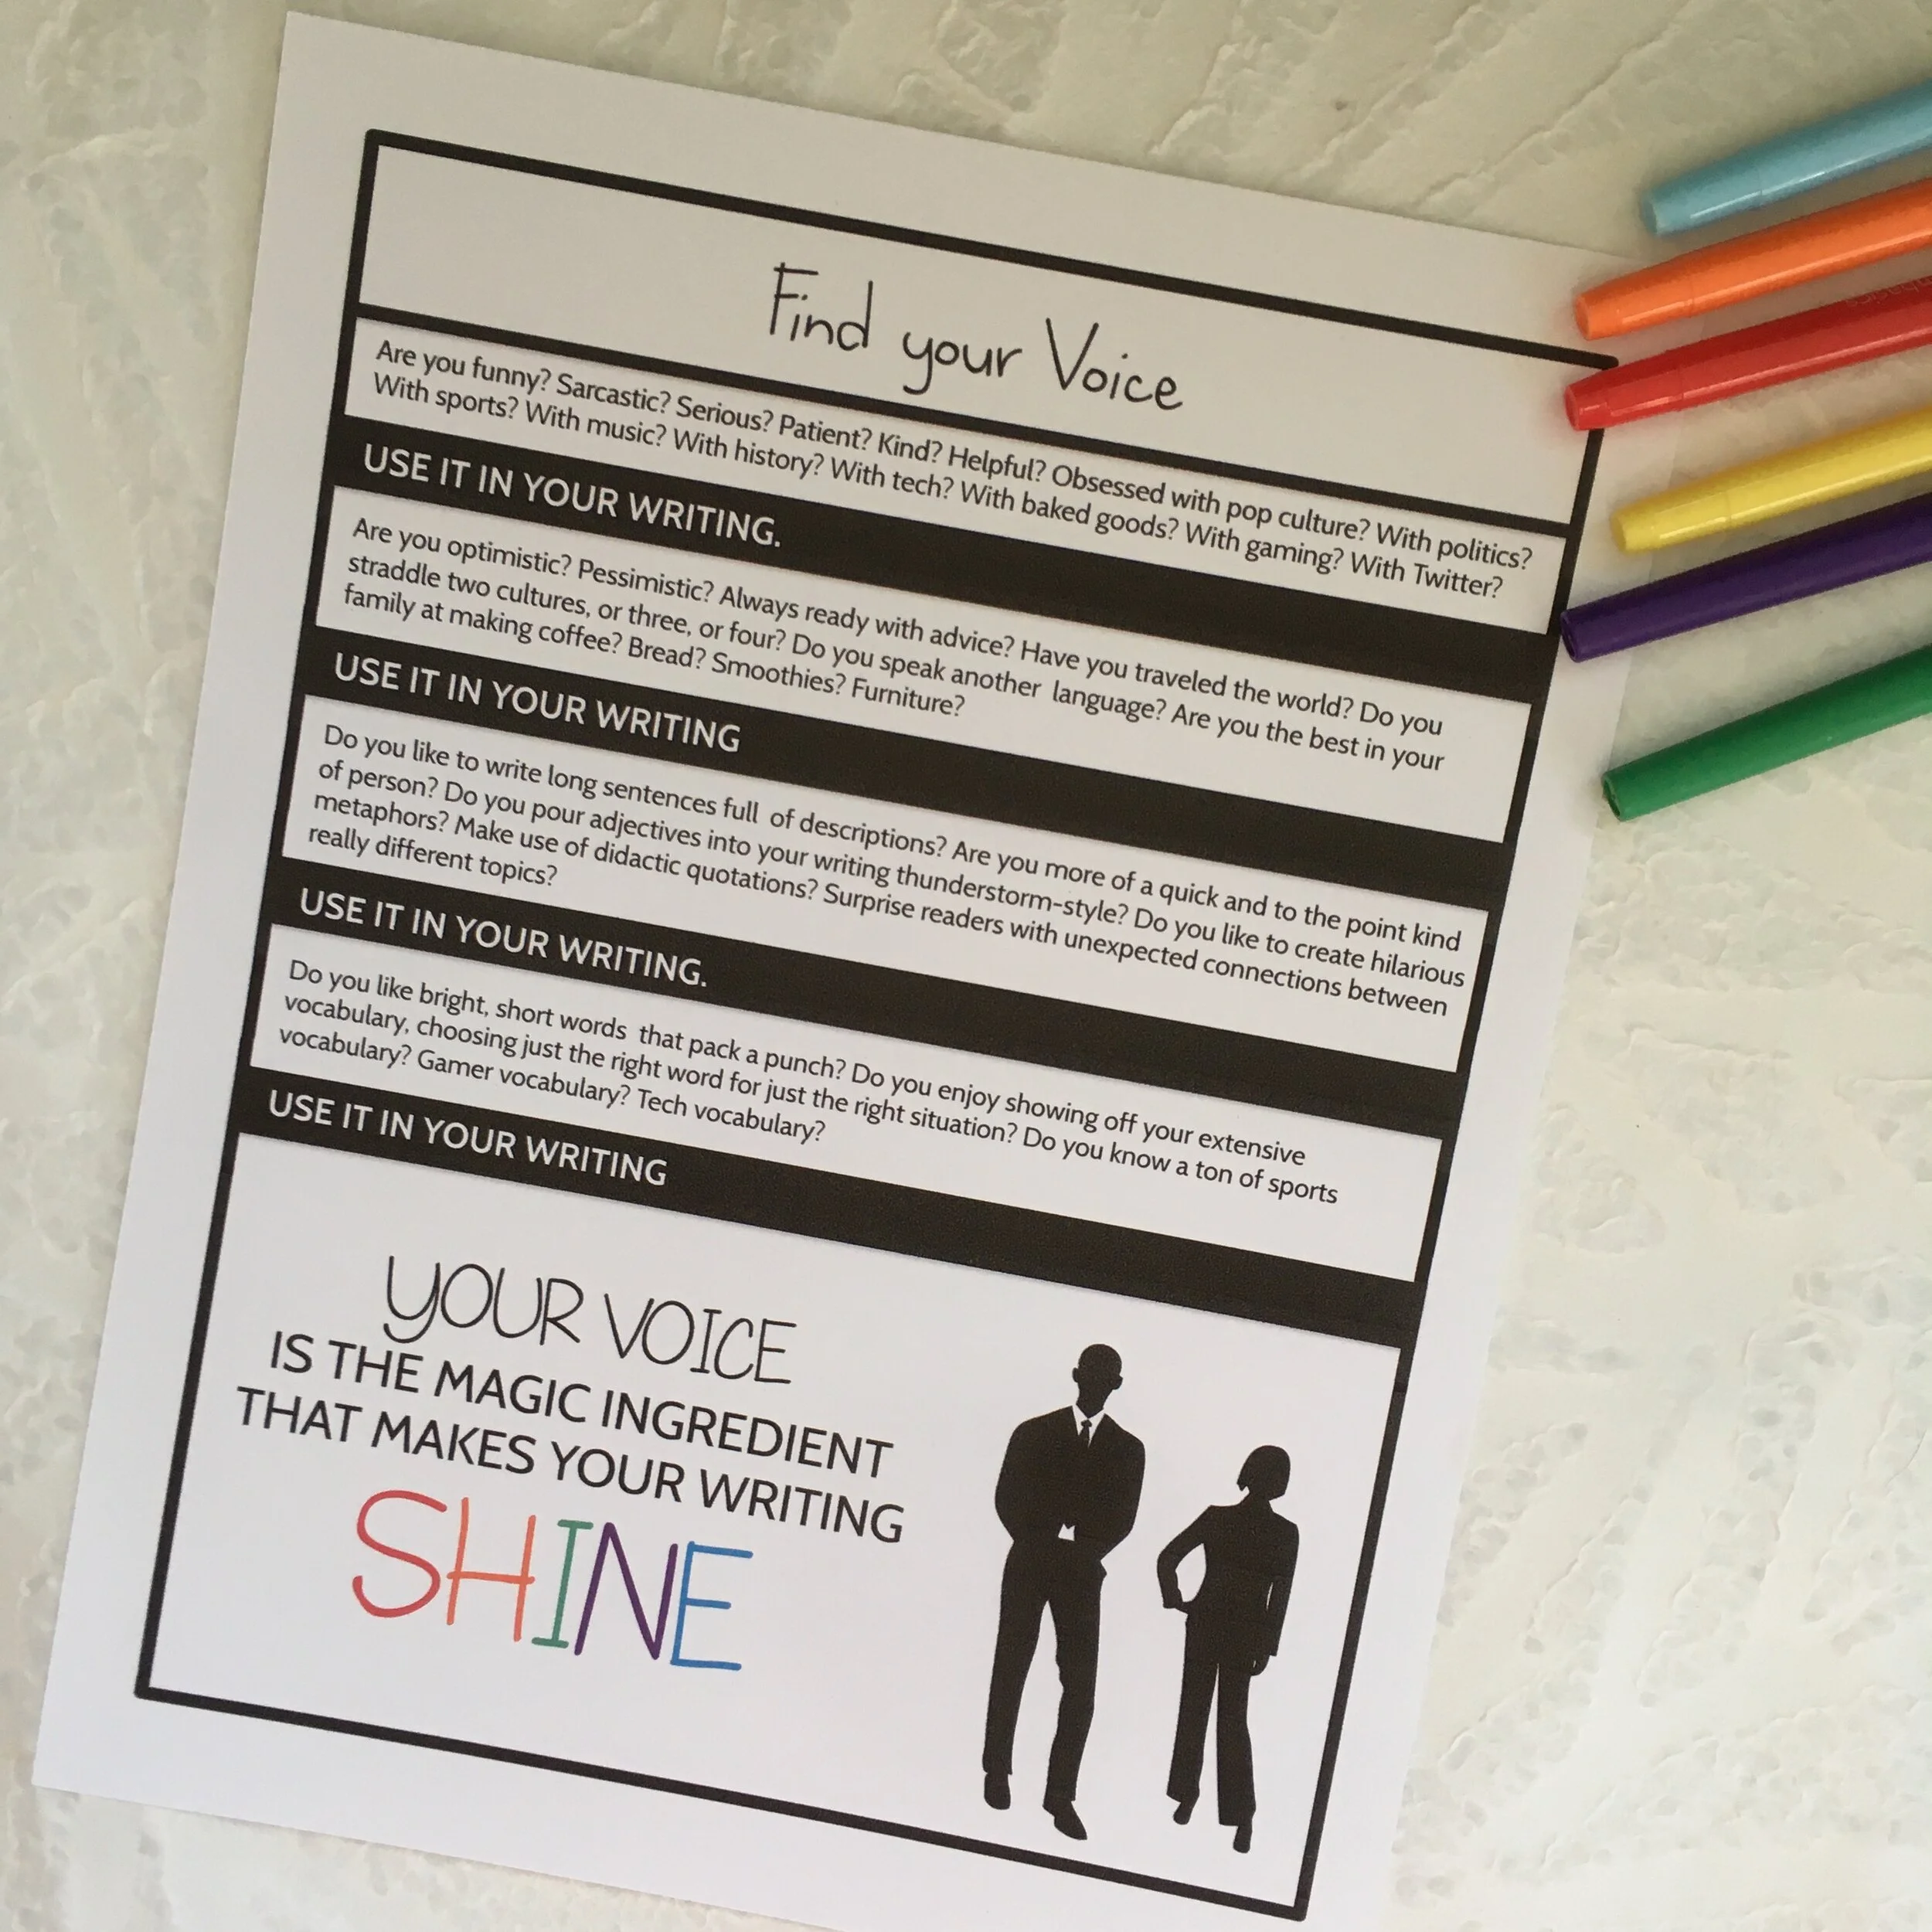 Find your Voice
Are you funny? Sarcastic? Serious? Patient? Kind? Helpful? Obsessed with pop culture? With politics?
With sports? With music? With history? With tech? With baked goods? With gaming? With Twitter?
USE IT IN YOUR WRITING.
Are you optimistic? Pessimistic? Always ready with advice? Have you traveled the world? Do you
straddle two cultures, or three, or four? Do you speak another language? Are you the best in your
family at making coffee? Bread? Smoothies? Furniture?
USE IT IN YOUR WRITING
Do you like to write long sentences full of descriptions? Are you more of a quick and to the point kind
of person? Do you pour adjectives into your writing thunderstorm-style? Do you like to create hilarious
metaphors? Make use of didactic quotations? Surprise readers with unexpected connections between
really different topics?
USE IT IN YOUR WRITING.
Do you like bright, short words that pack a punch? Do you enjoy showing off your extensive
vocabulary, choosing just the right word for just the right situation? Do you know a ton of sports
vocabulary? Gamer vocabulary? Tech vocabulary?
USE IT IN YOUR WRITING
YOUR VOICE
IS THE MAGIC INGREDIENT
THAT MAKES YOUR WRITING
SHINE